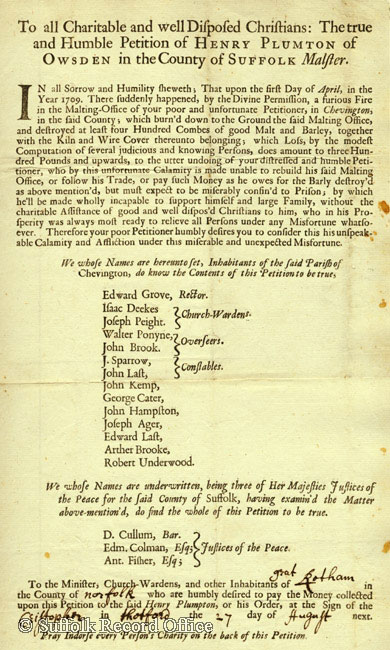 To all Charitable and well Diſpoſed Chriſtians: The true
and Humble Petition of HENRY PLUMTON of
OWSDEN in the County of SUFFOLK Malſter.
IN all Sorrow and Humility ſheweth; That upon the firſt Day of April, in the
Year 1709. There ſuddenly happened, by the Divine Permiſſion, a furious Fire
in the Malting-Office of your poor and unfortunate Petitioner, in Chevington,
in the ſaid County; which burn'd down to the Ground the ſaid Malting Office,
and deſtroyed at leaſt four Hundred Combes of good Malt and Barley, together
with the Kiln and Wire Cover thereunto belonging; which Loſs, by the modeſt
Computation of ſeveral judicious and knowing Perſons, does amount to three Hun-
dred Pounds and upwards, to the utter undoing of your diſtreſſed and humble Peti-
tioner, who by this unfortunate Calamity is made unable to rebuild his ſaid Malting
Office, or follow his Trade, or pay ſuch Money as he owes for the Barly deſtroy'd
as above mention'd, but muſt expect to be miſerably conſin'd to Priſon; by which
he'll be made wholly incapable to ſupport himſelf and large Family, without the
charitable Aſſiſtance of good and well diſpoſ'd Chriſtians to him, who in his Pro-
ſperity was always moſt ready to relieve all Perſons under any Misfortune whatſo-
ever. Therefore your poor Petitioner humbly deſires you to conſider this his unſpeak-
able Calamity and Affliction under this miſerable and unexpected Misfortune.
We whoſe Names are hereunto ſet, Inhabitants of the ſaid Pariſh of
Chevington, do know the Contents of this Petition to be true,
Edward Grove, Rector.
Iſaac Deekes
Joſeph Peight. Church-Wardens.
Walter Ponyne,
John Brook. Overſeers.
J. Sparrow,
John Laſt, Conſtables.
John Kemp,
George Cater,
John Hampſton,
Joſeph Ager,
Edward Laſt,
Arther Brooke,
Robert Underwood.
We whoſe Names are underwritten, being three of Her Majeſties Juſtices of
the Peace for the ſaid County of Suffolk, having examin'd the Matter
above-mention'd, do find the whole of this Petition to be true.
D. Cullum, Bar.
Edm. Colman, Eſq;
Ant. Fiſher, Eſq; Juſtices of the Peace.
To the Miniſter, Church-Wardens, and other Inhabitants of grat in
the County of norfolk who are humbly deſired to pay the Money collected
upon this Petition to the ſaid Henry Plumpton, or his Order, at the Sign of the
in thetford the 27 day of August next.
Pray Indorſe every Perſon's Charity on the back of this Petition.
© Suffolk Record Office